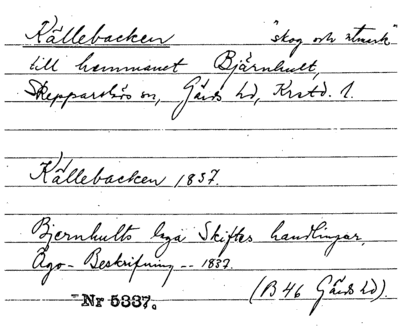 Källebacken "skog och utmark"
till hemmanet Bjärnhult,
Skepparslövs sn, Gärds hd, Krstd. l.
Källebacken 1837.
Bjernhults laga Skiftes handlingar,
Ägo-Beskrifning -- 1837.
(B 46 Gärds hd).
Nr 5337.